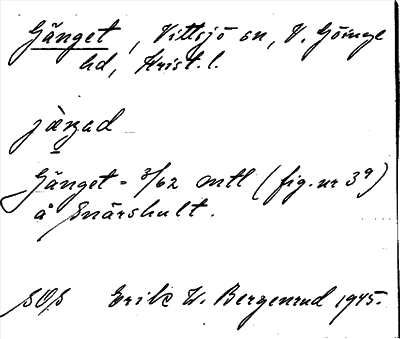 Gänget, Vittsjö sn, V. Göinge
hd, Krist. l.
jäŋad
Gänget = 3/62 mtl (fig. nr 39)
å Snärshult.
SOS Erik W. Bergenrud 1945.